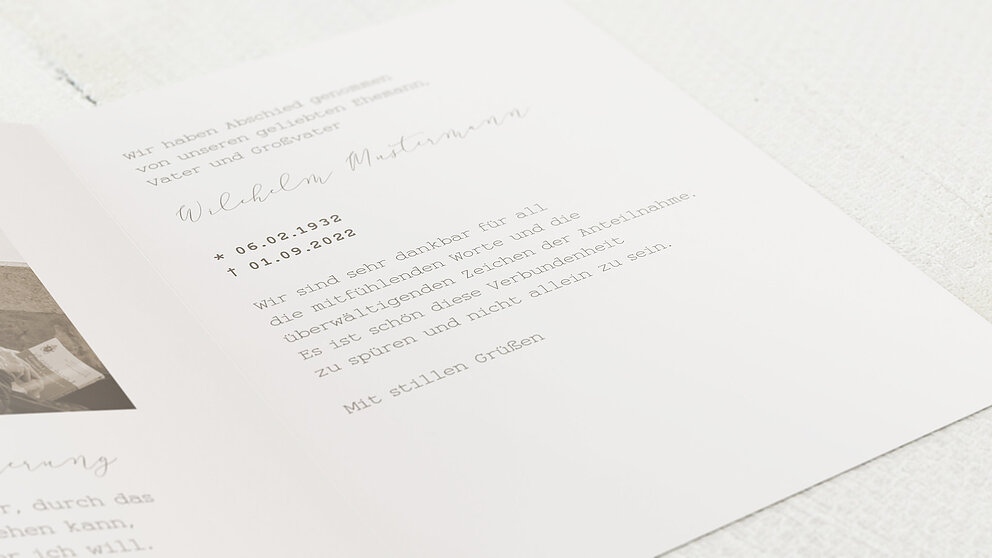 erung
r, durch das
ehen kann,
er ich will.
Wir haben Abschied genommen
von unseren geliebten Ehemann,
Vater und Großvater
Wilehelm Mustermann
* 06.02.1932
† 01.09.2022
Wir sind sehr dankbar für all
die mitfühlenden Worte und die
überwältigenden Zeichen der Anteilnahme.
Es ist schön diese Verbundenheit
zu spüren und nicht allein zu sein.
Mit stillen Grüßen